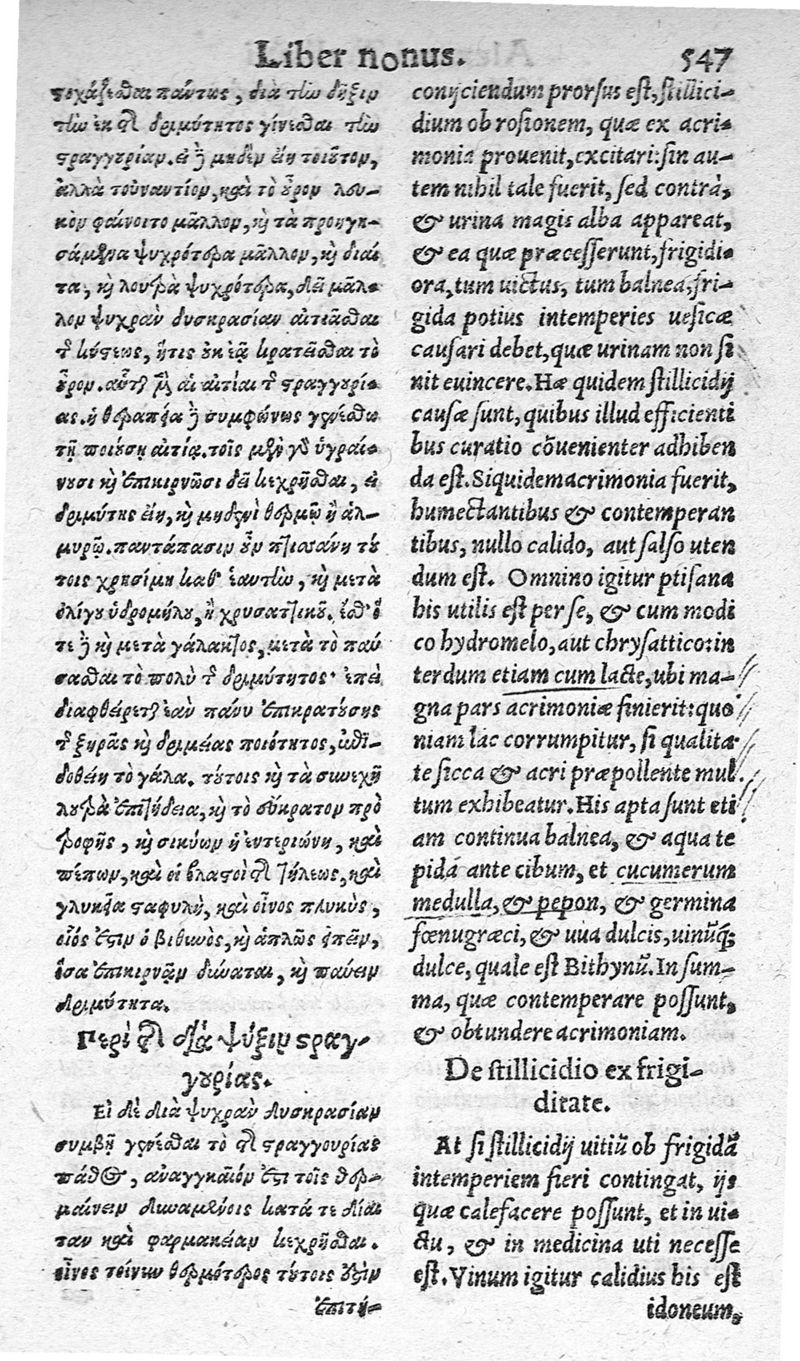 Liber nonus. 547
στοχάζεσθαι πάντως, διὰ τὴν δῆξιν
τὴν ἐκ τῆς δριμύτητος γίνεσθαι τὴν
στραγγουρίαν. εἰ δὲ μηδὲν εἴη τοιοῦτον,
ἀλλὰ τοὐναντίον, καὶ τὸ οὖρον λευ-
κὸν φαίνοιτο μᾶλλον, καὶ τὰ προηγη-
σάμενα ψυχρότερα μᾶλλον, καὶ δίαι
τα, καὶ λουτρὰ ψυχρότερα, δεῖ μᾶλ-
λον ψυχρὰν δυσκρασίαν αἰτιᾶσθαι
τῆς κύστεως, ἥτις οὐκ ἐᾷ κρατεῖσθαι τὸ
οὖρον. αὗται μὲν αἱ αἰτίαι τῆς στραγγουρί-
ας. ἡ θεραπεία δὲ συμφώνως γενέσθω
τῇ ποιούσῃ αἰτίᾳ. τοῖς μὲν γὰρ ὑγραί-
νουσι καὶ ἐπικιρνῶσι δεῖ κεχρῆσθαι, εἰ
δριμύτης εἴη, καὶ μηδενὶ θερμῷ ἢ ἁλ-
μυρῷ. παντάπασιν οὖν πτισάνη τού
τοις χρησίμη καθ' ἑαυτὴν, καὶ μετὰ
ὀλίγου ὑδρομήλου, ἢ χρυσαττικοῦ. ἔσθ' ὅ
τε δὲ καὶ μετὰ γάλακτος, μετὰ τὸ παύ
σασθαι τὸ πολὺ τῆς δριμύτητος· ἐπεὶ
διαφθείρεται ἐὰν πάνυ ἐπικρατούσης
τῆς ξηρᾶς καὶ δριμείας ποιότητος, ἐπι-
δοθείη τὸ γάλα. τούτοις καὶ τὰ συνεχῆ
λουτρὰ ἐπιτήδεια, καὶ τὸ εὔκρατον πρὸ
τροφῆς, καὶ σικύων ἡ ἐντεριώνη, καὶ
πέπων, καὶ οἱ βλαστοὶ τῆς τήλεως, καὶ
γλυκεῖα σταφυλὴ, καὶ οἶνος γλυκὺς,
οἷός ἐστιν ὁ βιθυνὸς, καὶ ἁπλῶς εἰπεῖν,
ὅσα ἐπικιρνᾶν δύναται, καὶ παύειν
δριμύτητα.
Περὶ τῆς διὰ ψύξιν στραγ-
γουρίας.
Εἰ δὲ διὰ ψυχρὰν δυσκρασίαν
συμβῇ γενέσθαι τὸ τῆς στραγγουρίας
πάθος, ἀναγκαῖόν ἐστι τοῖς θερ-
μαίνειν δυναμένοις κατά τε δίαι
ταν καὶ φαρμακείαν κεχρῆσθαι.
οἶνος τοίνυν θερμότερος τούτοις ἐστὶν
ἐπιτή-
conijciendum prorsus est, stillici-
dium ob rosionem, quæ ex acri-
monia prouenit, excitari: sin au-
tem nihil tale fuerit, sed contrà,
& urina magis alba appareat,
& ea quæ præcesserunt, frigidi-
ora, tum uictus, tum balnea, fri-
gida potius intemperies uesicæ
causari debet, quæ urinam non si
nit euincere. Hæ quidem stillicidij
causæ sunt, quibus illud efficienti
bus curatio cōuenienter adhiben
da est. Siquidem acrimonia fuerit,
humectantibus & contemperan
tibus, nullo calido, aut salso uten
dum est. Omnino igitur ptisana
his utilis est per se, & cum modi
co hydromelo, aut chrysattico: in
terdum etiam cum lacte, ubi ma-
gna pars acrimoniæ finierit: quo
niam lac corrumpitur, si qualita-
te sicca & acri præpollente mul
tum exhibeatur. His apta sunt eti
am continua balnea, & aqua te
pida ante cibum, et cucumerum
medulla, & pepon, & germina
fœnugræci, & uua dulcis, uinūq;
dulce, quale est Bithynū. In sum-
ma, quæ contemperare possunt,
& obtundere acrimoniam.
De stillicidio ex frigi-
ditate.
At si stillicidij uitiū ob frigidā
intemperiem fieri contingat, ijs
quæ calefacere possunt, et in ui-
ctu, & in medicina uti necesse
est. Vinum igitur calidius his est
idoneum,